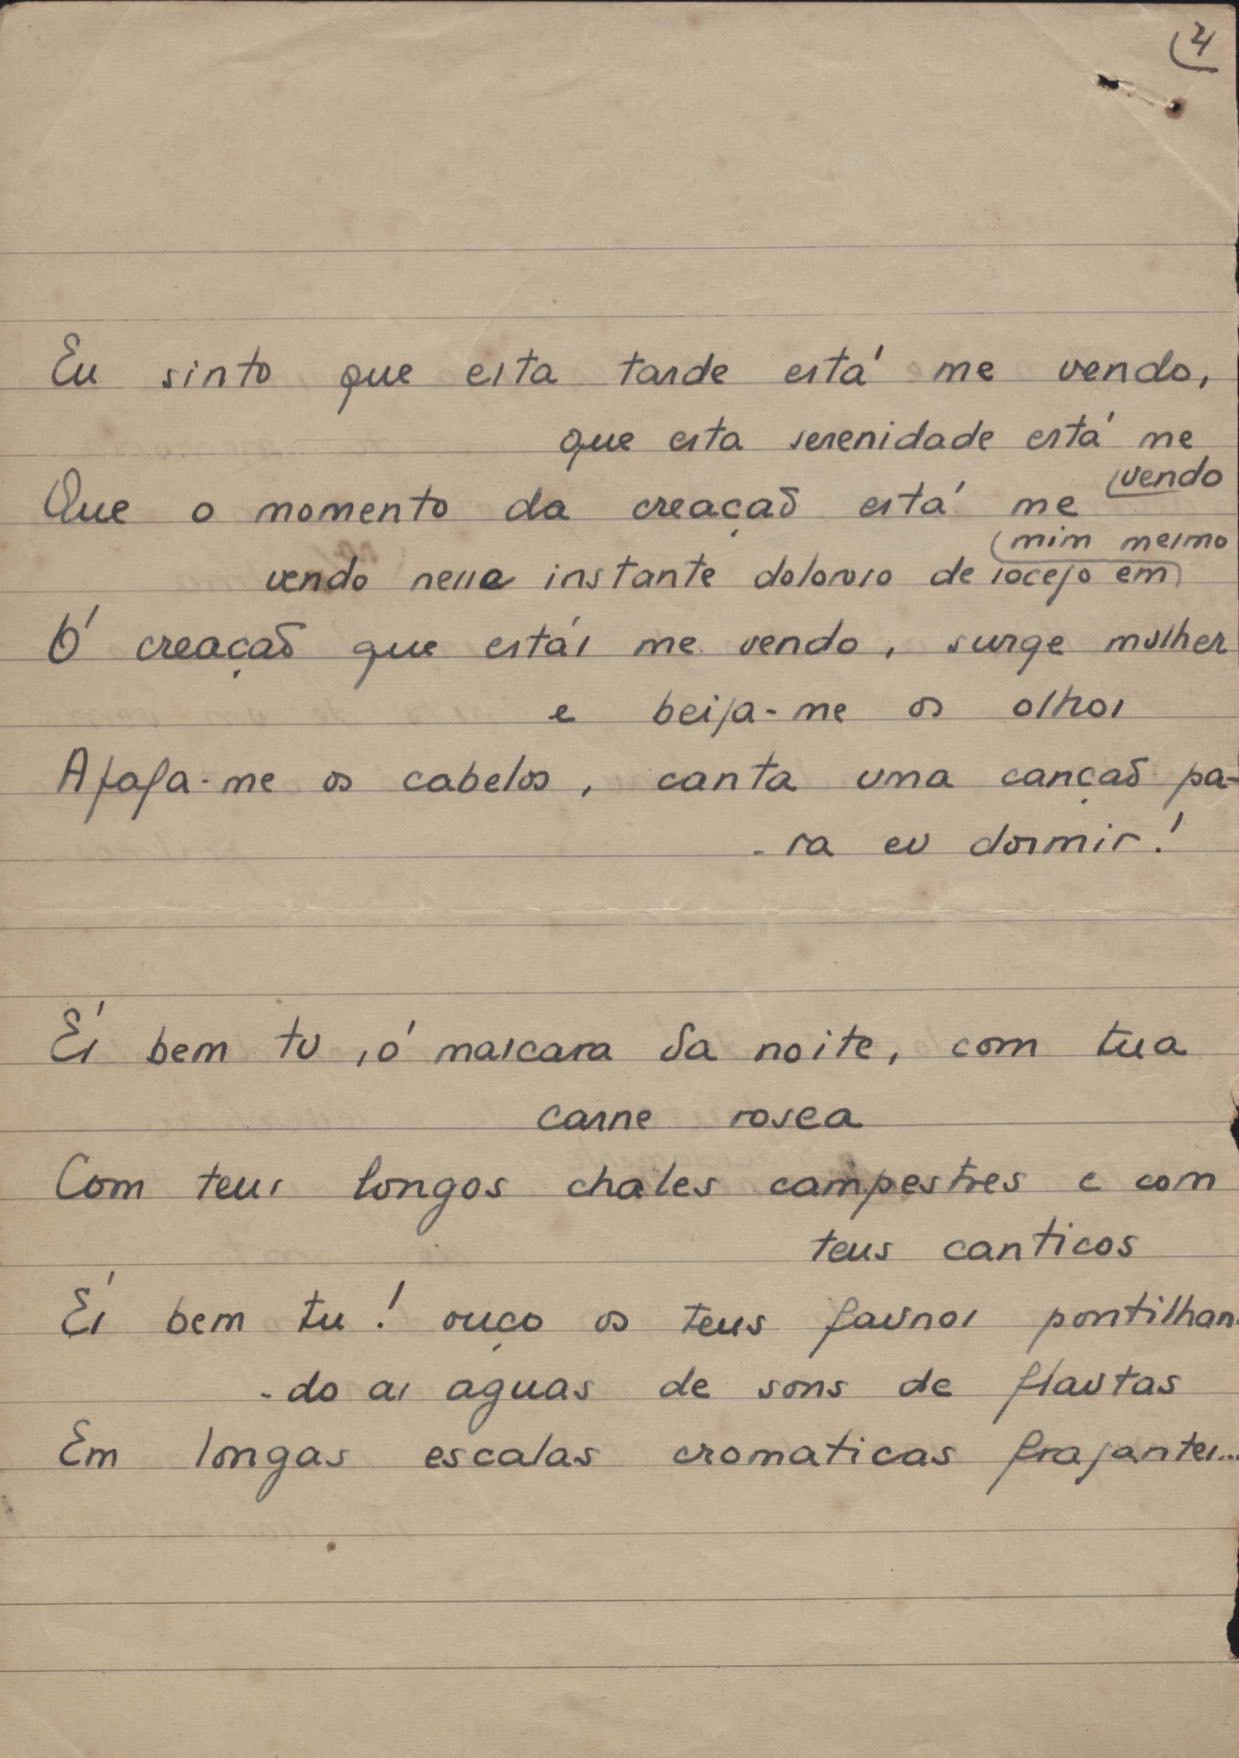 4
Eu sinto que esta tarde está me vendo,
que esta serenidade está me
(vendo
Que o momento da creação está me
(mim mesmo
vendo nesse instante doloroso de socejo em
Ó creação que estás me vendo, surge mulher
e beija-me os olhos
Afaga-me os cabelos, canta uma canção pa-
-ra eu dormir!
És bem tu, ó mascara da noite, com tua
carne rosea
Com teus longos chales campestres e com
teus canticos
És bem tu! ouço os teus faunos pontilhan-
-do as aguas de sons de flautas
Em longas escalas cromaticas fragantes...